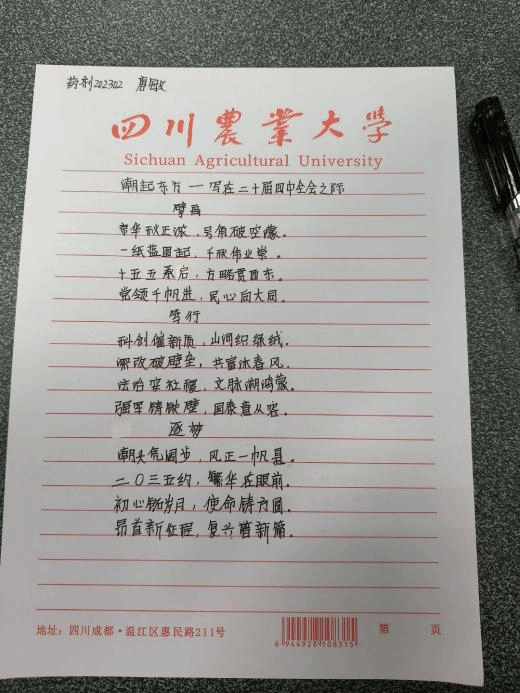 药剂202302 唐
四川農業大学
Sichuan Agricultural University
潮起东方 — 写在二十届四中全会之际
擘画
京华秋正浓，号角破空濛。
一纸蓝图起，千秋伟业崇。
十五五承启，方略贯西东。
党领千帆进，民心向大同。
笃行
科创催新质，山河织绿绒。
深改破壁垒，共富沐春风。
法治安社稷，文脉溯鸿蒙。
强军铸铁壁，国泰意从容。
逐梦
潮头凭阔步，风正一帆悬。
二〇三五约，繁华在眼前。
初心铭岁月，使命铸方圆。
昂首新征程，复兴谱新篇。
地址：四川成都·温江区惠民路211号
6 944928 108315
第 页